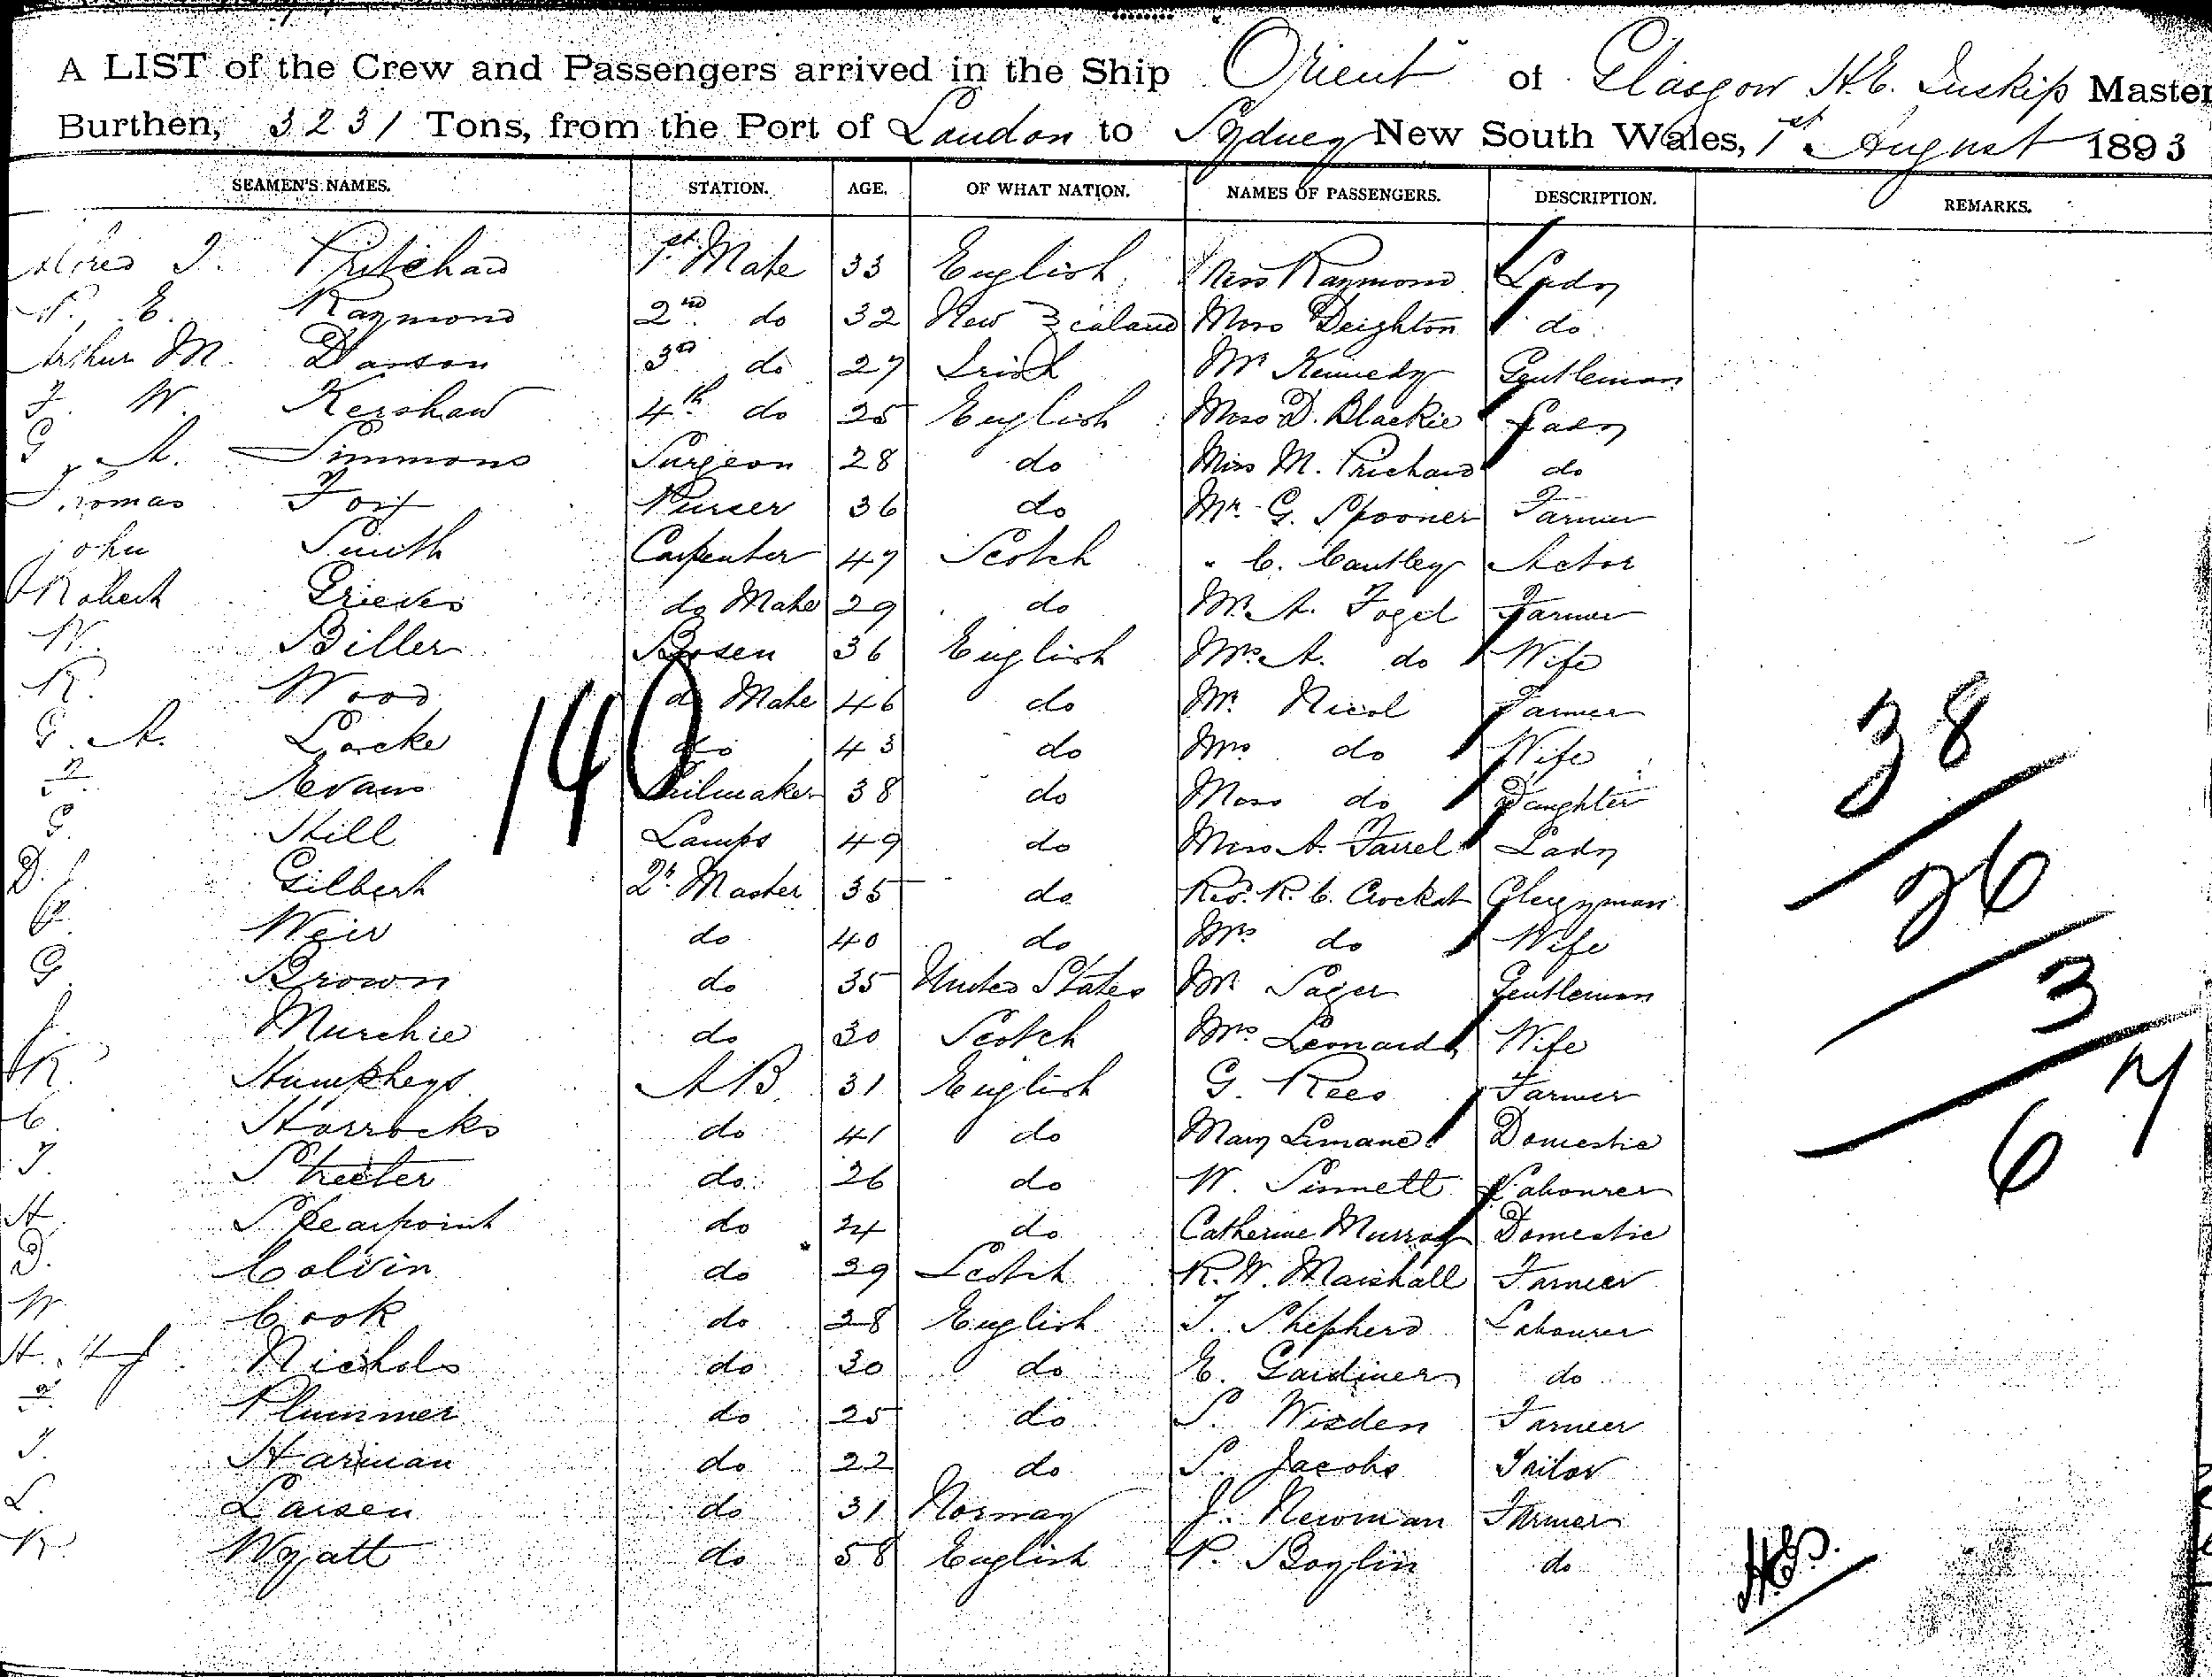 A LIST of the Crew and Passengers arrived in the Ship Orient of Glasgow H.E. Inskip Master
Burthen, 3231 Tons, from the Port of London to Sydney New South Wales, 1st August 1893
SEAMEN'S NAMES. STATION. AGE. OF WHAT NATION. NAMES OF PASSENGERS. DESCRIPTION. REMARKS.
J. Pritchard 1st Mate 33 English Miss Raymond Lady
E. Raymond 2nd do 32 New Zealand Miss Deighton do
Arthur M. Dawson 3rd do 27 Irish Mr Kennedy Gentleman
F. W. Kershaw 4th do 25 English Miss D. Blackie Lady
G. A. Simmons Surgeon 28 do Miss M. Prichard do
Thomas Fox Purser 36 do Mr. G. Spooner Farmer
John Smith Carpenter 47 Scotch " C. Cautley Actor
Robert Grieves do Mate 29 do Mr. A. Fogel Farmer
W. Biller Bosen 36 English Mrs. A. do Wife
R. Wood do Mate 46 do Mr. Nicol Farmer
G. A. Locke do 43 do Mrs do Wife
F. Evans Sailmaker 38 do Miss do Daughter
G. Hill Lamps 49 do Miss A. Farrel Lady
D. Gilbert Qr. Master 35 do Rev. R. C. Crockat Clergyman
Weir do 40 do Mrs do Wife
G. Brown do 35 United States Mr Sager Gentleman
J. Murchie do 30 Scotch Mrs Leonard Wife
R. Humpheys AB. 31 English G. Rees Farmer
C. Horrocks do 41 do Mary Domestic
T. Streeter do 26 do W. Sinnett Labourer
H. Spearpoint do 24 do Catherine Murray Domestic
D. Colvin do 29 Scotch R. W. Marshall Farmer
W. Cook do 28 English T. Shepherd Labourer
H. Nichols do 30 do E. Gardiner do
F. Plummer do 25 do S. Wisden Farmer
T. Harman do 22 do S. Jacobs Tailor
L. Larsen do 31 Norway J. Newman Farmer
R. Wyatt do 58 English P. Boylin do
140
38
26
3
67